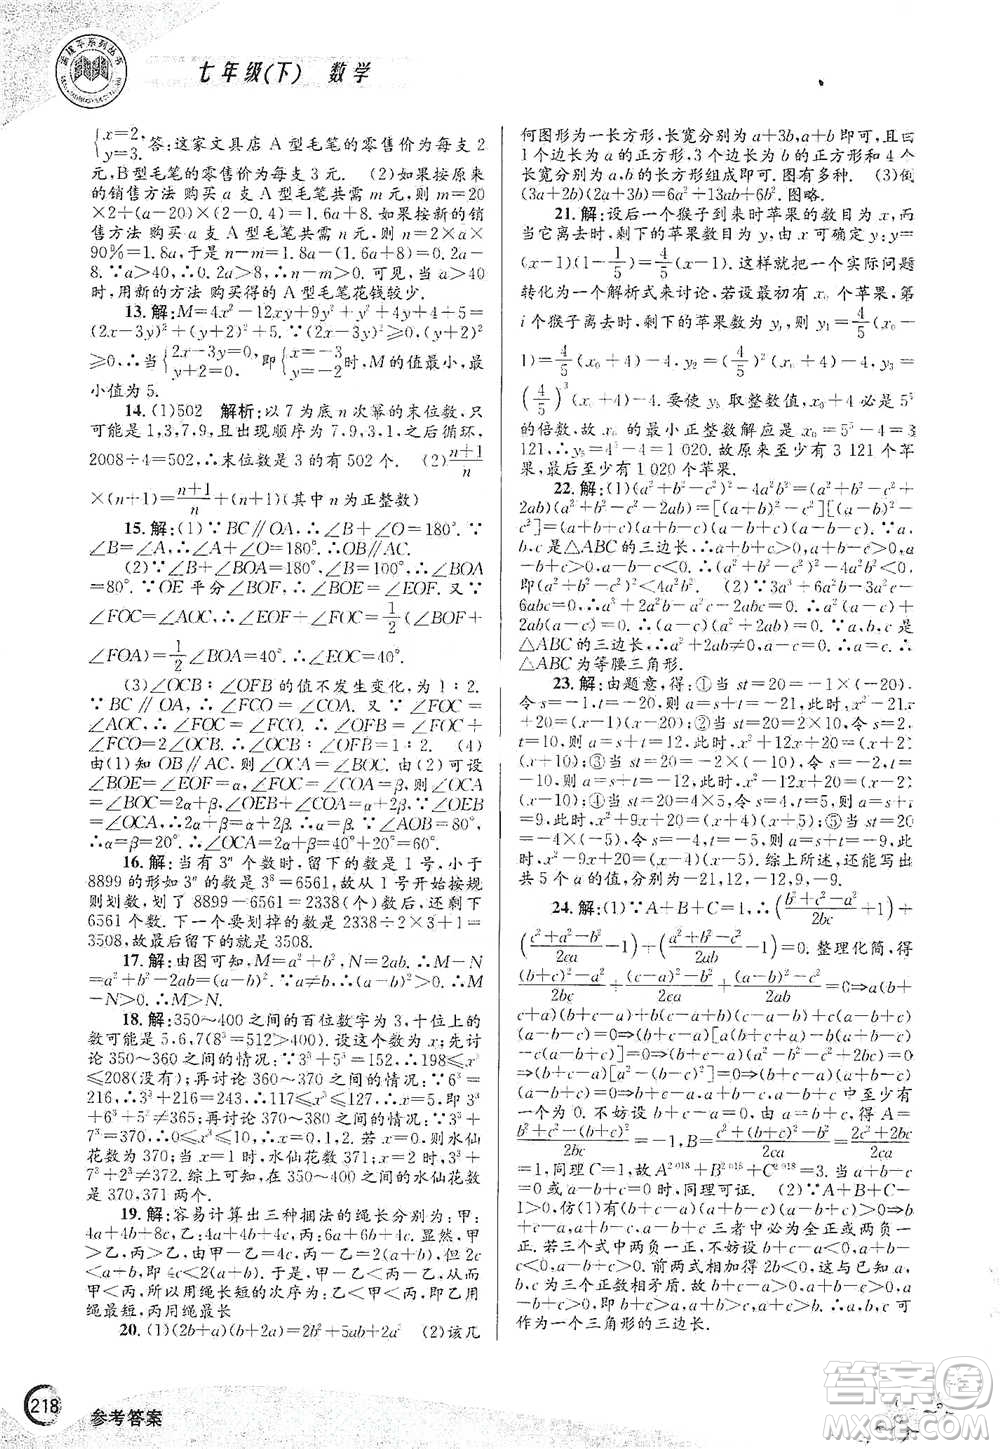 七年级(下) 数学
{x=2, y=3. 答:这家文具店 A 型毛笔的零售价为每支 2
元,B 型毛笔的零售价为每支 3 元. (2)如果按原来
的销售方法 购买 a 支 A 型毛笔共需 m 元,则 m=20
×2+(a-20)×(2-0.4)=1.6a+8. 如果按新的销
售方法 购买 a 支 A 型毛笔共需 n 元,则 n=a×2×
90%=1.8a,于是 n-m=1.8a-(1.6a+8)=0.2a
-8. ∵a>40,∴0.2a>8. ∴n>m. 可见,当 a>40 时,
用新的方法 购买得的 A 型毛笔花钱较少.
13. 解:M=4x²-12xy+9y²+y²+4y+4+5=
(2x-3y)²+(y+2)²+5. ∵(2x-3y)²+(y+2)²≥0,
∴当{2x-3y=0, y+2=0, 即{x=-3 y=-2 时,M 的值最小,最
小值为 5.
14. (1)502 解析:以 7 为底 n 次幂的末位数,只
可能是 1,3,7,9,且出现顺序为 7,9,3,1,之后循环,
2008÷4=502,∴末位数是 3 的有 502 个. (2)(n+1)/n
×(n+1)=(n+1)/n+(n+1)(其中 n 为正整数)
15. 解:(1)∵BC∥OA,∴∠B+∠O=180°. ∵
∠B=∠A,∴∠A+∠O=180°. ∴OB∥AC.
(2)∵∠B=∠A=100°,∴∠BOA=80°.
∵OE 平分∠BOF,∴∠BOE=∠EOF. 又∵
∠FOC=∠AOC,∴∠EOF+∠FOC=1/2(∠BOF+
∠FOA)=1/2∠BOA=40°. ∴∠EOC=40°.
(3)∠OCB:∠OFB 的值不发生变化,为 1:2.
∵BC∥OA,∴∠FCO=∠COA. 又∵∠FOC=
∠AOC,∴∠FOC=∠FCO. ∴∠OFB=∠FOC+
∠FCO=2∠OCB. ∴∠OCB:∠OFB=1:2. (4)
由(1)知 OB∥AC,∴∠OCA=∠BOC. 由(2)可设
∠BOE=∠EOF=α,∠FOC=∠COA=β,∴∠OCA
=∠BOC=2α+β,∠OEB=∠EOC+∠ECO=α+β+β=α+2β,∵∠OEB
=∠OCA,∴2α+β=α+2β. ∴α=β. ∵∠AOB=80°,
∴α=β=20°. ∴∠OCA=2α+β=40°+20°=60°.
16. 解:当有 3ⁿ 个数时,留下的数是 1 号,小于
8899 的形如 3ⁿ 的数是 3⁸=6561,故从 1 号开始按规
则划数,划了 8899-6561=2338(个)数后,还剩下
6561 个数. 下一个要划掉的数是 2338÷2×3+1=
3508,故最后留下的就是 3508.
17. 解:由图可知,M=a²+b²,N=2ab. ∴M-N
=a²+b²-2ab=(a-b)². ∵a≠b,∴(a-b)²>0. ∴M
-N>0. ∴M>N.
18. 解:350～400 之间的百位数字为 3,十位上的
数可能是 5,6,7(8³=512>400). 设这个数为 x;先讨
论 350～360 之间的情况:∵3³+5³=152,∴198≤x³
≤208(没有);再讨论 360～370 之间的情况:∵6³=
216,∴3³+6³=243,∴117≤x³≤127,∴x=5,但 3³+
6³+5³≠365;再讨论 370～380 之间的情况:∵3³+
7³=370,∴0≤x³≤10,∴x=0,1,2. 若 x=0,则水仙
花数为 370;若 x=1,则水仙花数为 371;若 x=2,3³+
7³+2³≠372. 综上可得,在 350～400 之间的水仙花数
是 370,371 两个.
19. 解:容易计算出三种捆法的绳长分别为:甲:
4a+4b+8c,乙:4a+4b+4c,丙:6a+6b+4c. 显然,甲
>乙,丙>乙. 甲-乙=4c,丙-乙=2a+2b. ∵a>b>
c,∴2a+2b>4c. 于是,丙-乙>甲-乙. ∴丙>甲,从而
甲<丙,所以用绳长短的次序为:乙<甲<丙,即乙用
绳最短,丙用绳最长
20. (1)(2b+a)(b+2a)=2b²+5ab+2a² (2)该几
何图形为一长方形,长宽分别为 a+3b,a+b 即可,应画
1 个边长为 a 的正方形,3 个边长为 b 的正方形和 4 个
长宽分别为 a,b 的长方形组成即可. 图有多种. (3)例
(3a+2b)(2a+3b)=6a²+13ab+6b². 图略.
21. 解:设后一个猴子到来时苹果的数目为 x,而
当它离去时,剩下的苹果数为 y,则 y=(x-1)(1-
1/5)=4/5(x-1). 这样就把一个实际问题
转化为一个解析式来讨论,若设最初有 x₀ 个苹果,第
i 个猴子离去时,剩下的苹果数为 yᵢ,则 y₁=4/5(x₀
-1)=4/5(x₀+4)-4,y₂=(4/5)²(x₀+4)-4,y₃=
(4/5)³(x₀+4)-4. 要使 y₅ 取整数值,x₀+4 必是 5⁵
的倍数,故 x₀ 的最小正整数解应是 x₀=5⁵-4=3
121,∴y₅=4⁵-4=1 020. 故原来至少有 3 121 个苹
果,最后至少有 1 020 个苹果.
22. 解:(1)(a²+b²-c²)²-4a²b²=(a²+b²-c²+
2ab)(a²+b²-c²-2ab)=[(a+b)²-c²][(a-b)²-
c²]=(a+b+c)(a+b-c)(a-b+c)(a-b-c). ∵a,
b,c 是△ABC 的三边长,∴a+b+c>0,a+b-c>0,
a-b+c>0,a-b-c<0. ∴(a²+b²-c²)²-4a²b²<0.
∴(a²+b²-c²)²<4a²b². (2)∵3a³+6a²b-3a²c-
6abc=0,∴
2ab(a-c)=0,
△ABC 的三边长,∴a²+2ab≠0. ∴a-c=0. ∴a=c.
△ABC 为等腰三角形.
23. 解:由题意,得:①当 st=20=-1×(-20),
令 s=-1,t=-20,所以 a=s+t=-21,此时,x²-21x
+20=(x-1)(x-20);②当 st=20=2×10,令 s=2,
t=10,所以 a=s+t=12,此时,x²+12x+20=(x+2)
(x+10);③当 st=20=-2×(-10),令 s=-2,t=
-10,所以 a=s+t=-12,此时,x²-12x+20=(x-2)
(x-10);④当 st=20=4×5,令 s=4,t=5,所以 a=s+
t=9,此时,x²+9x+20=(x+4)(x+5);⑤当 st=20=
-4×(-5),令 s=-4,t=-5,所以 a=s+t=-9,此
时,x²-9x+20=(x-4)(x-5). 综上所述,还能写出
共 5 个 a 的值,分别为-21,12,-12,9,-9.
24. 解:(1)∵A+B+C=1,∴((b²+c²-a²)/2bc+1)+
((c²+a²-b²)/2ca-1)+((a²+b²-c²)/2ab-1)=0. 整理化简,得
((b+c)²-a²)/2bc+((c-a)²-b²)/2ca+((a-b)²-c²)/2ab=0⇒a(b+
有一个为 0. 不妨设 b+c-a=0,∴b+c=a. ∴A=
=1,同理 C=1. 故 A²⁰¹⁸+B²⁰¹⁸+C²⁰¹⁸=3. 当 a+b-c
=0 或 a-b+c=0 时,同理可证. (2)∵A+B+C
1>0,仿(1)有(b+c-a)(a-b+c)(a+b-c)>0.
b+c-a,a-b+c,a+b-c 三者中必为全正或两负一
正. 若三个式中两负一正,不妨设 b+c-a<0,a-b+
c<0,a+b-c>0. 前两式相加得 c<0,这与已知 a,
b,c 为三个正数相矛盾. 故 b+c-a>0,a-b+c>0,
a+b-c>0. ∴b+c>a,a+c>b,a+b>c. ∴a,b,c 可
作为一个三角形的三边长.
218
参考答案
答案圈
MXQE.COM